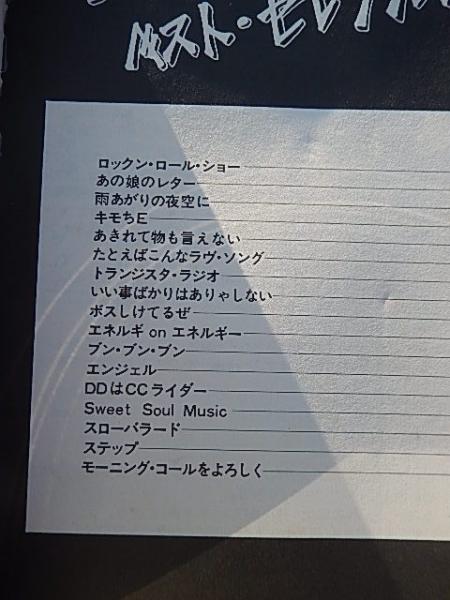 ベスト・セレクション
ロックン・ロール・ショー
あの娘のレター
雨あがりの夜空に
キモちE
あきれて物も言えない
たとえばこんなラヴ・ソング
トランジスタ・ラジオ
いい事ばかりはありゃしない
ボスしけてるぜ
エネルギー on エネルギー
ブン・ブン・ブン
エンジェル
DDはCCライダー
Sweet Soul Music
スローバラード
ステップ
モーニング・コールをよろしく